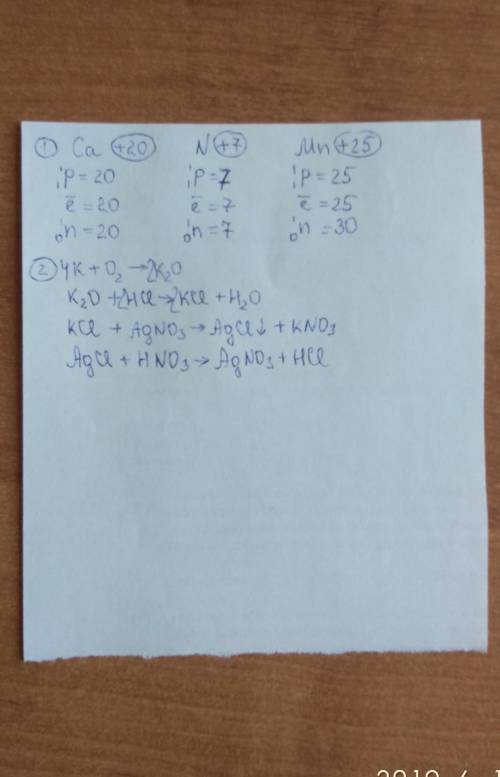 ① Ca (+20) N (+7) Mn (+25)
¹₁p = 20 ¹₁p = 7 ¹₁p = 25
ē = 20 ē = 7 ē = 25
¹₀n = 20 ¹₀n = 7 ¹₀n = 30
② 4K + O₂ → 2K₂O
K₂O + 2HCl → 2KCl + H₂O
KCl + AgNO₃ → AgCl↓ + KNO₃
AgCl + HNO₃ → AgNO₃ + HCl